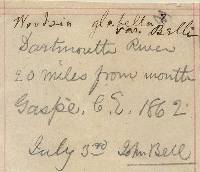 Woodsia glabella
var. Belli
Dartmouth River
20 miles from mouth
Gaspé. C.E. 1862
July 3rd John Bell